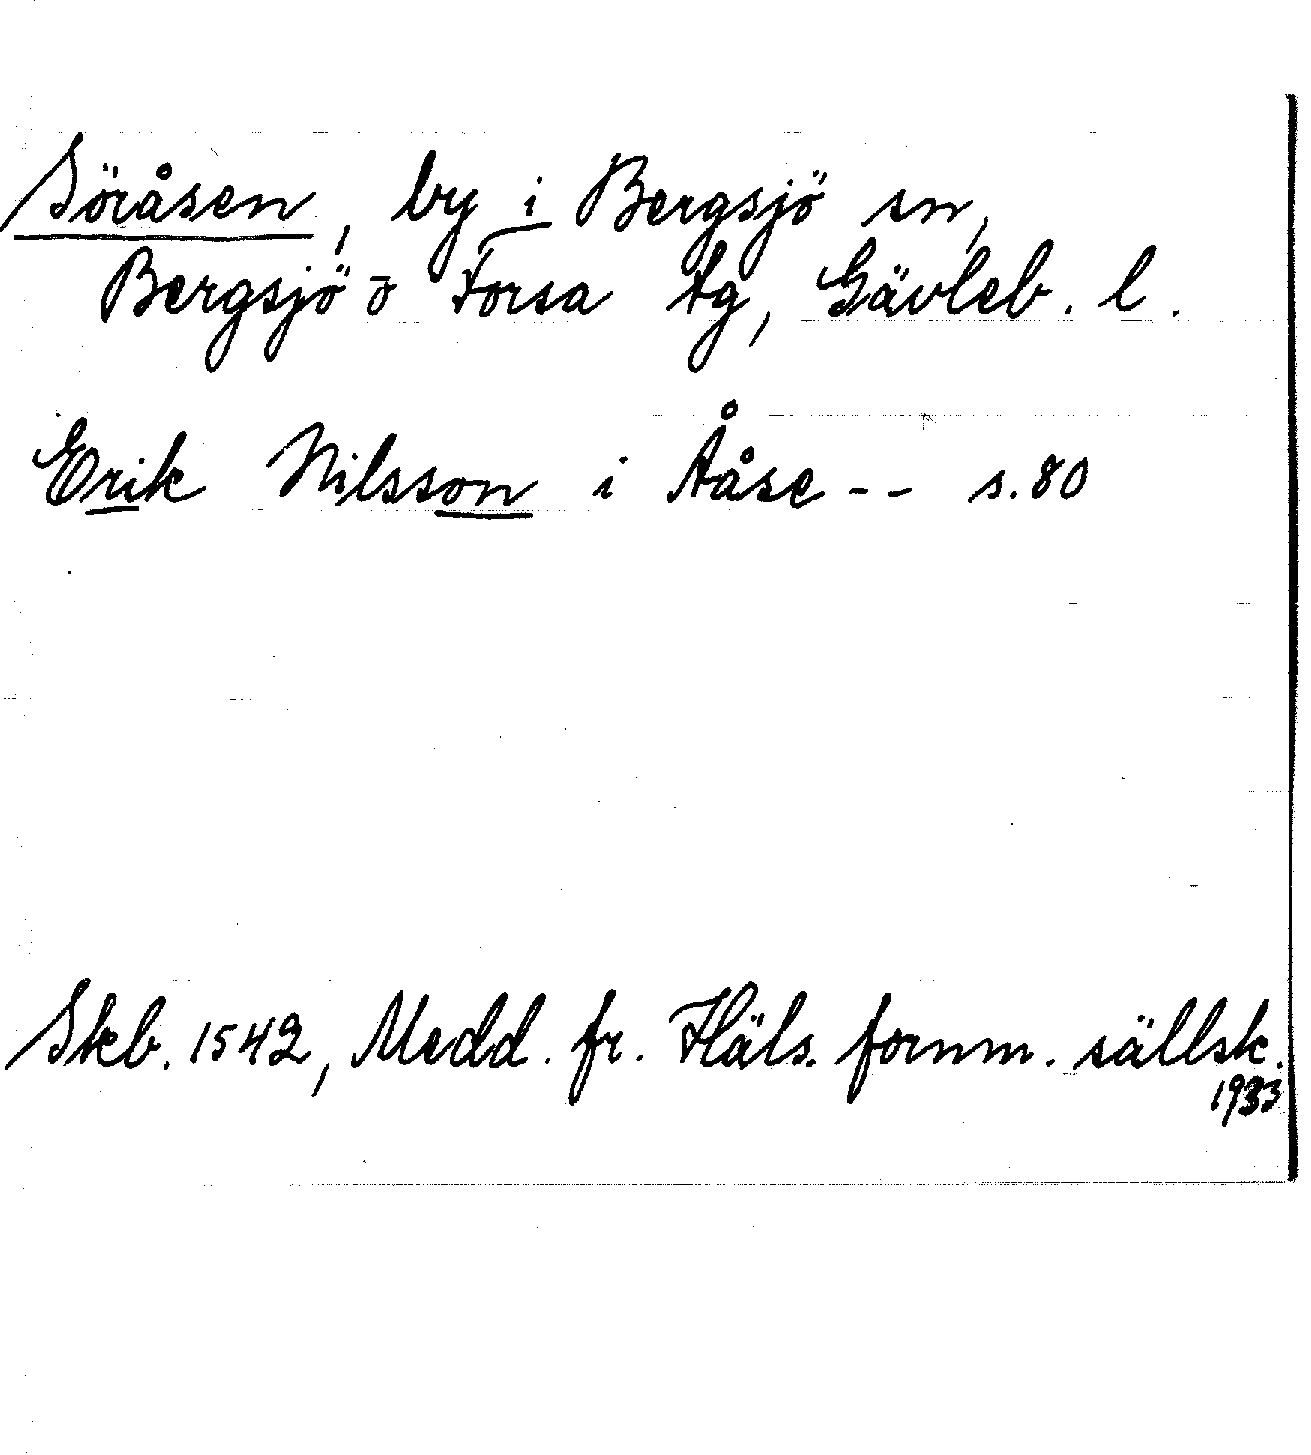 Söråsen, by i Bergsjö sn,
Bergsjö o Forsa tg, Gävleb. l.
Erik Nilsson i Ååse -- s. 80
Skb. 1542, Medd. fr. Häls. fornm. sällsk.
1933